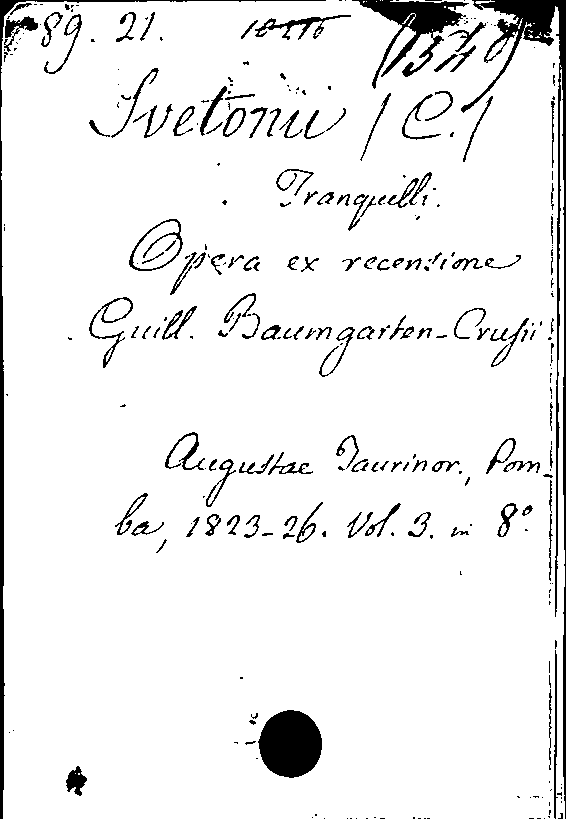 89. 21. (1340)
Svetonii / C. /
Tranquilli.
Opera ex recensione
Guill. Baumgarten-Crusii
Augustae Taurinor., Pom-
ba, 1823-26. Vol. 3. in 8°.